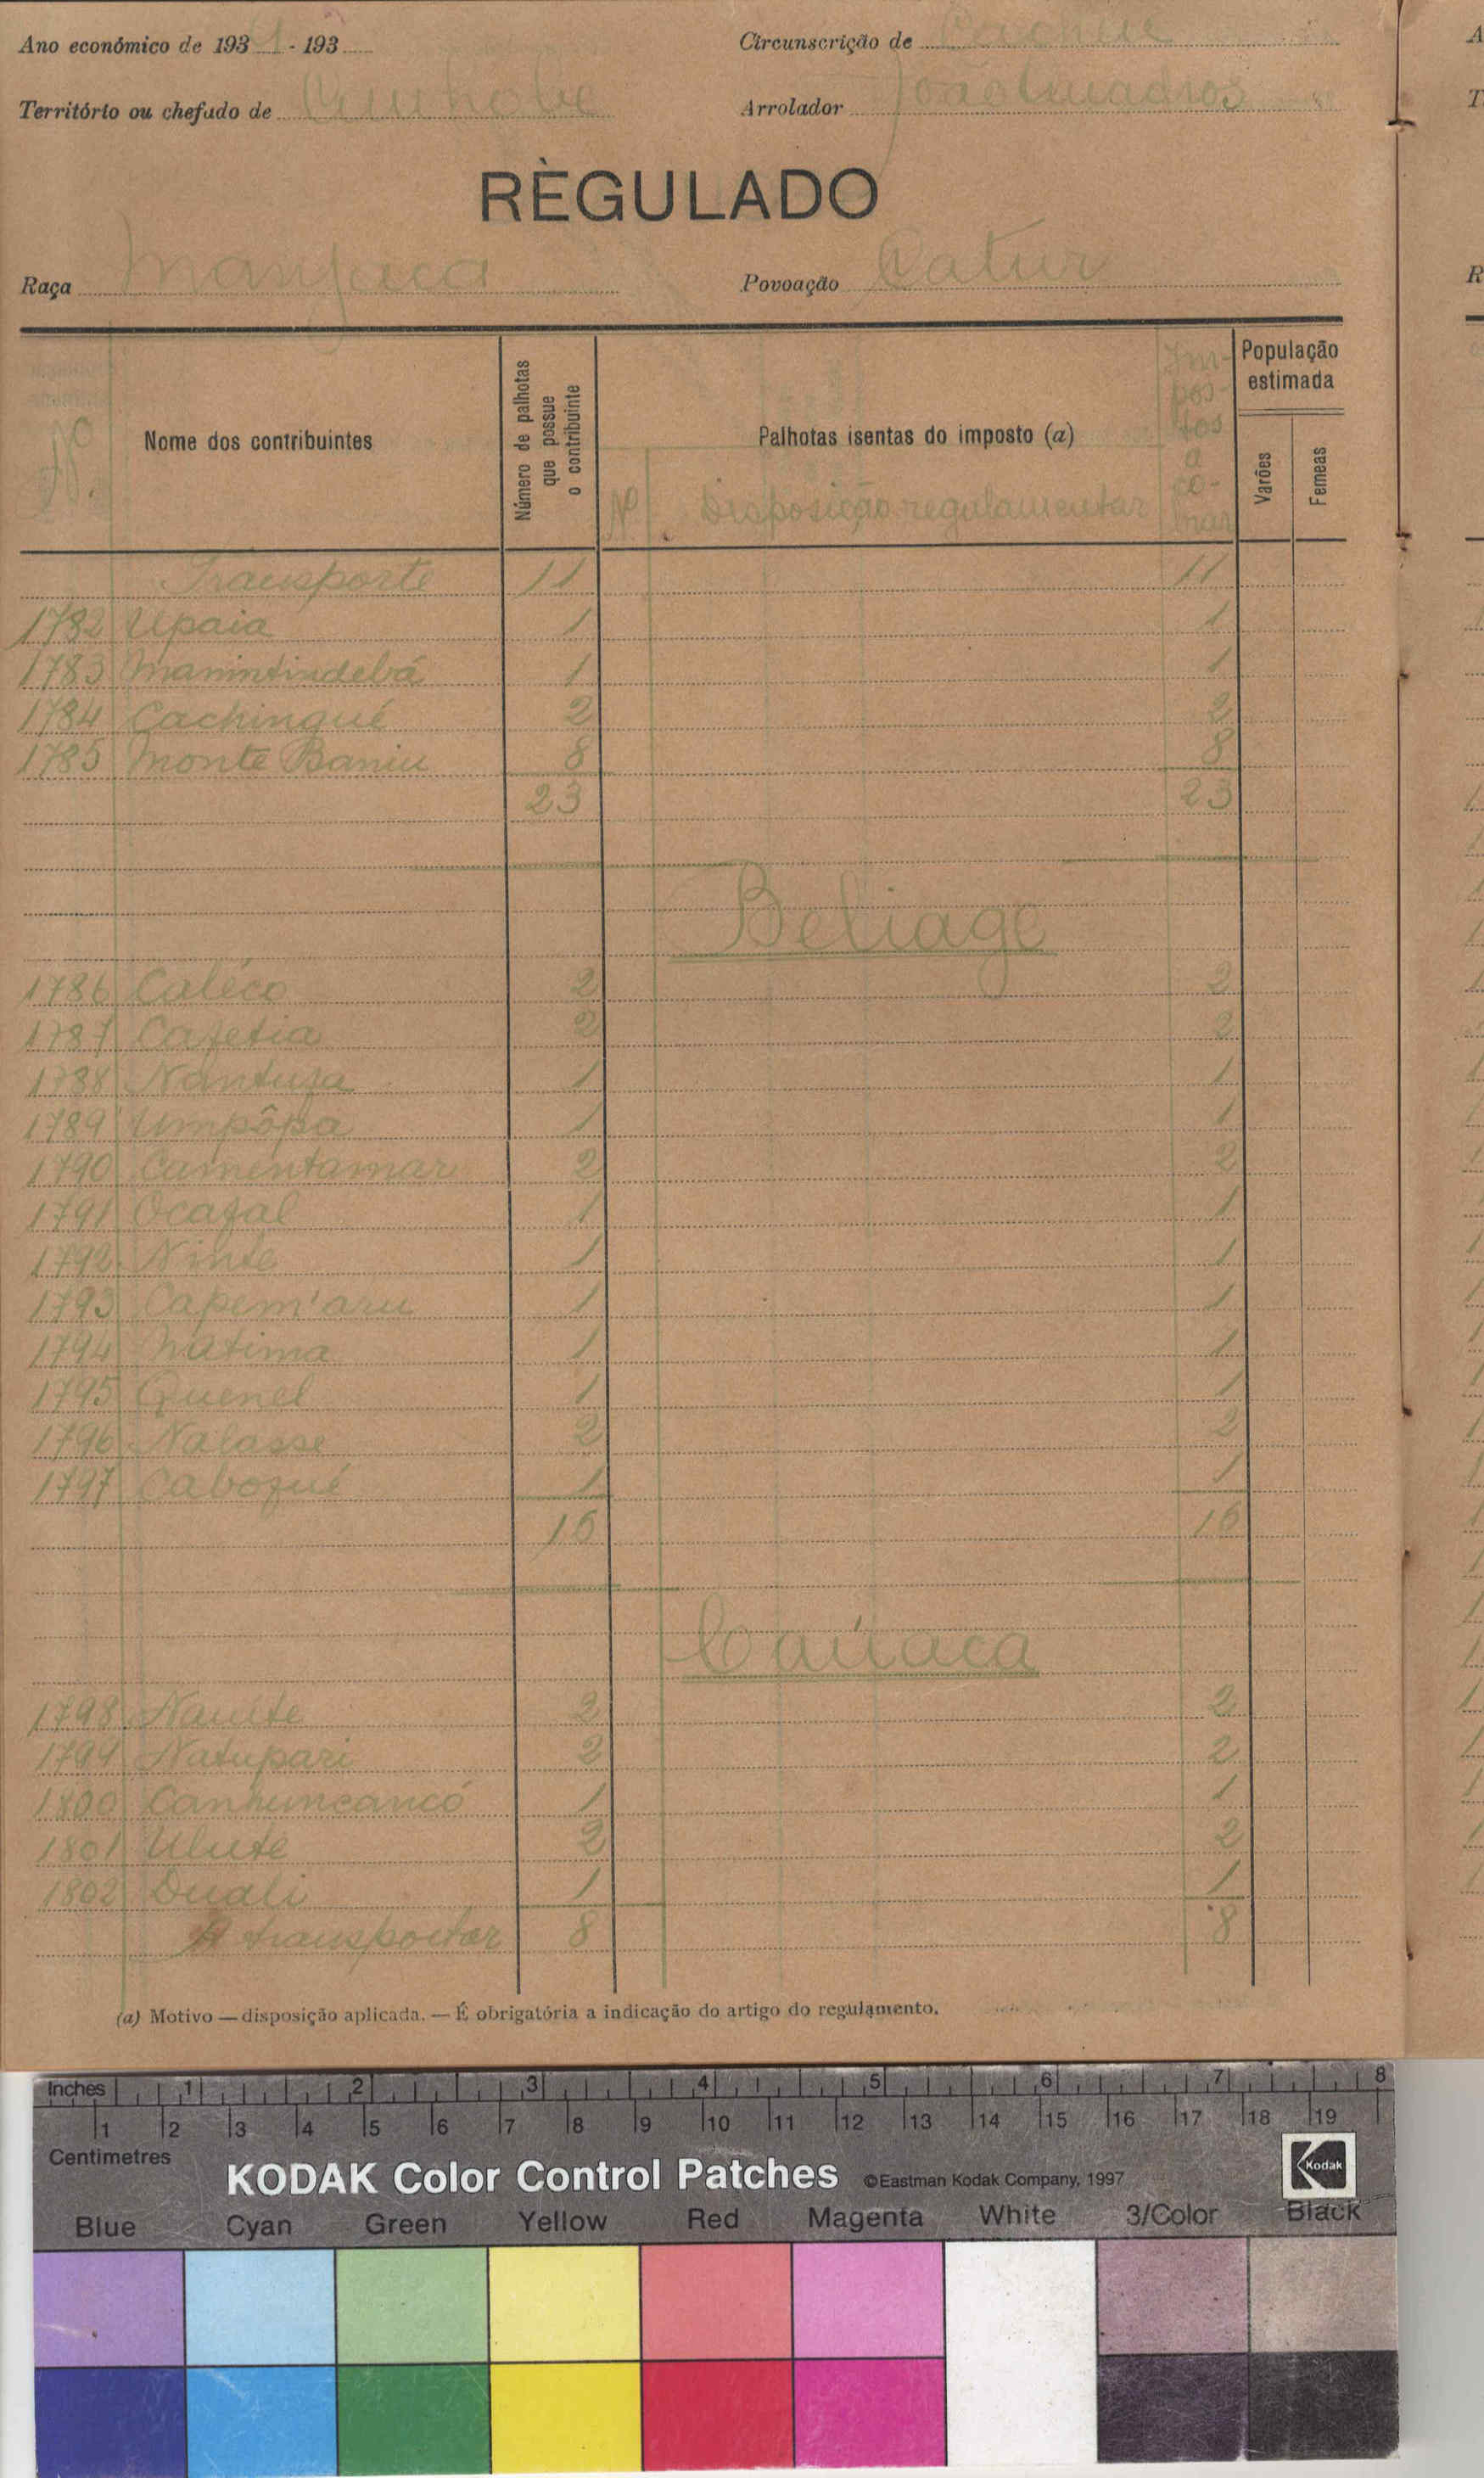 Ano económico de 193 - 193
Circunscrição de
Território ou chefado de
Arrolador João Quadros
RÈGULADO
Raça Manjaca
Povoação Catur
Nº
Nome dos contribuintes
Número de palhotas que possue o contribuinte
Palhotas isentas do imposto (a)
Nº Disposição regulamentar
Im-
pos-
tos
a
co-
brar
População estimada
Varões
Femeas
Transporte 11 11
1782 Upaia 1 1
1783 Manintindebá 1 1
1784 Cachingué 2 2
1785 Monte Baniu 8 8
23 23
Beliage
1786 Caléco 2 2
1787 Cafetia 2 2
1788 Nantufa 1 1
1789 Umpôpa 1 1
1790 Camentamar 2 2
1791 Ocafal 1 1
1792 Ninte 1 1
1793 Capem'aru 1 1
1794 Natima 1 1
1795 Quenel 1 1
1796 Nalasse 2 2
1797 Cabozué 1 1
16 16
Caiíaca
1798 Naúte 2 2
1799 Natupari 2 2
1800 Canhuncancó 1 1
1801 Ulute 2 2
1802 Duali 1 1
A transportar 8 8
(a) Motivo — disposição aplicada. — É obrigatória a indicação do artigo do regulamento.
Inches 1 2 3 4 5 6 7 8
1 2 3 4 5 6 7 8 9 10 11 12 13 14 15 16 17 18 19
Centimetres
KODAK Color Control Patches ©Eastman Kodak Company, 1997 Kodak
Blue Cyan Green Yellow Red Magenta White 3/Color Black